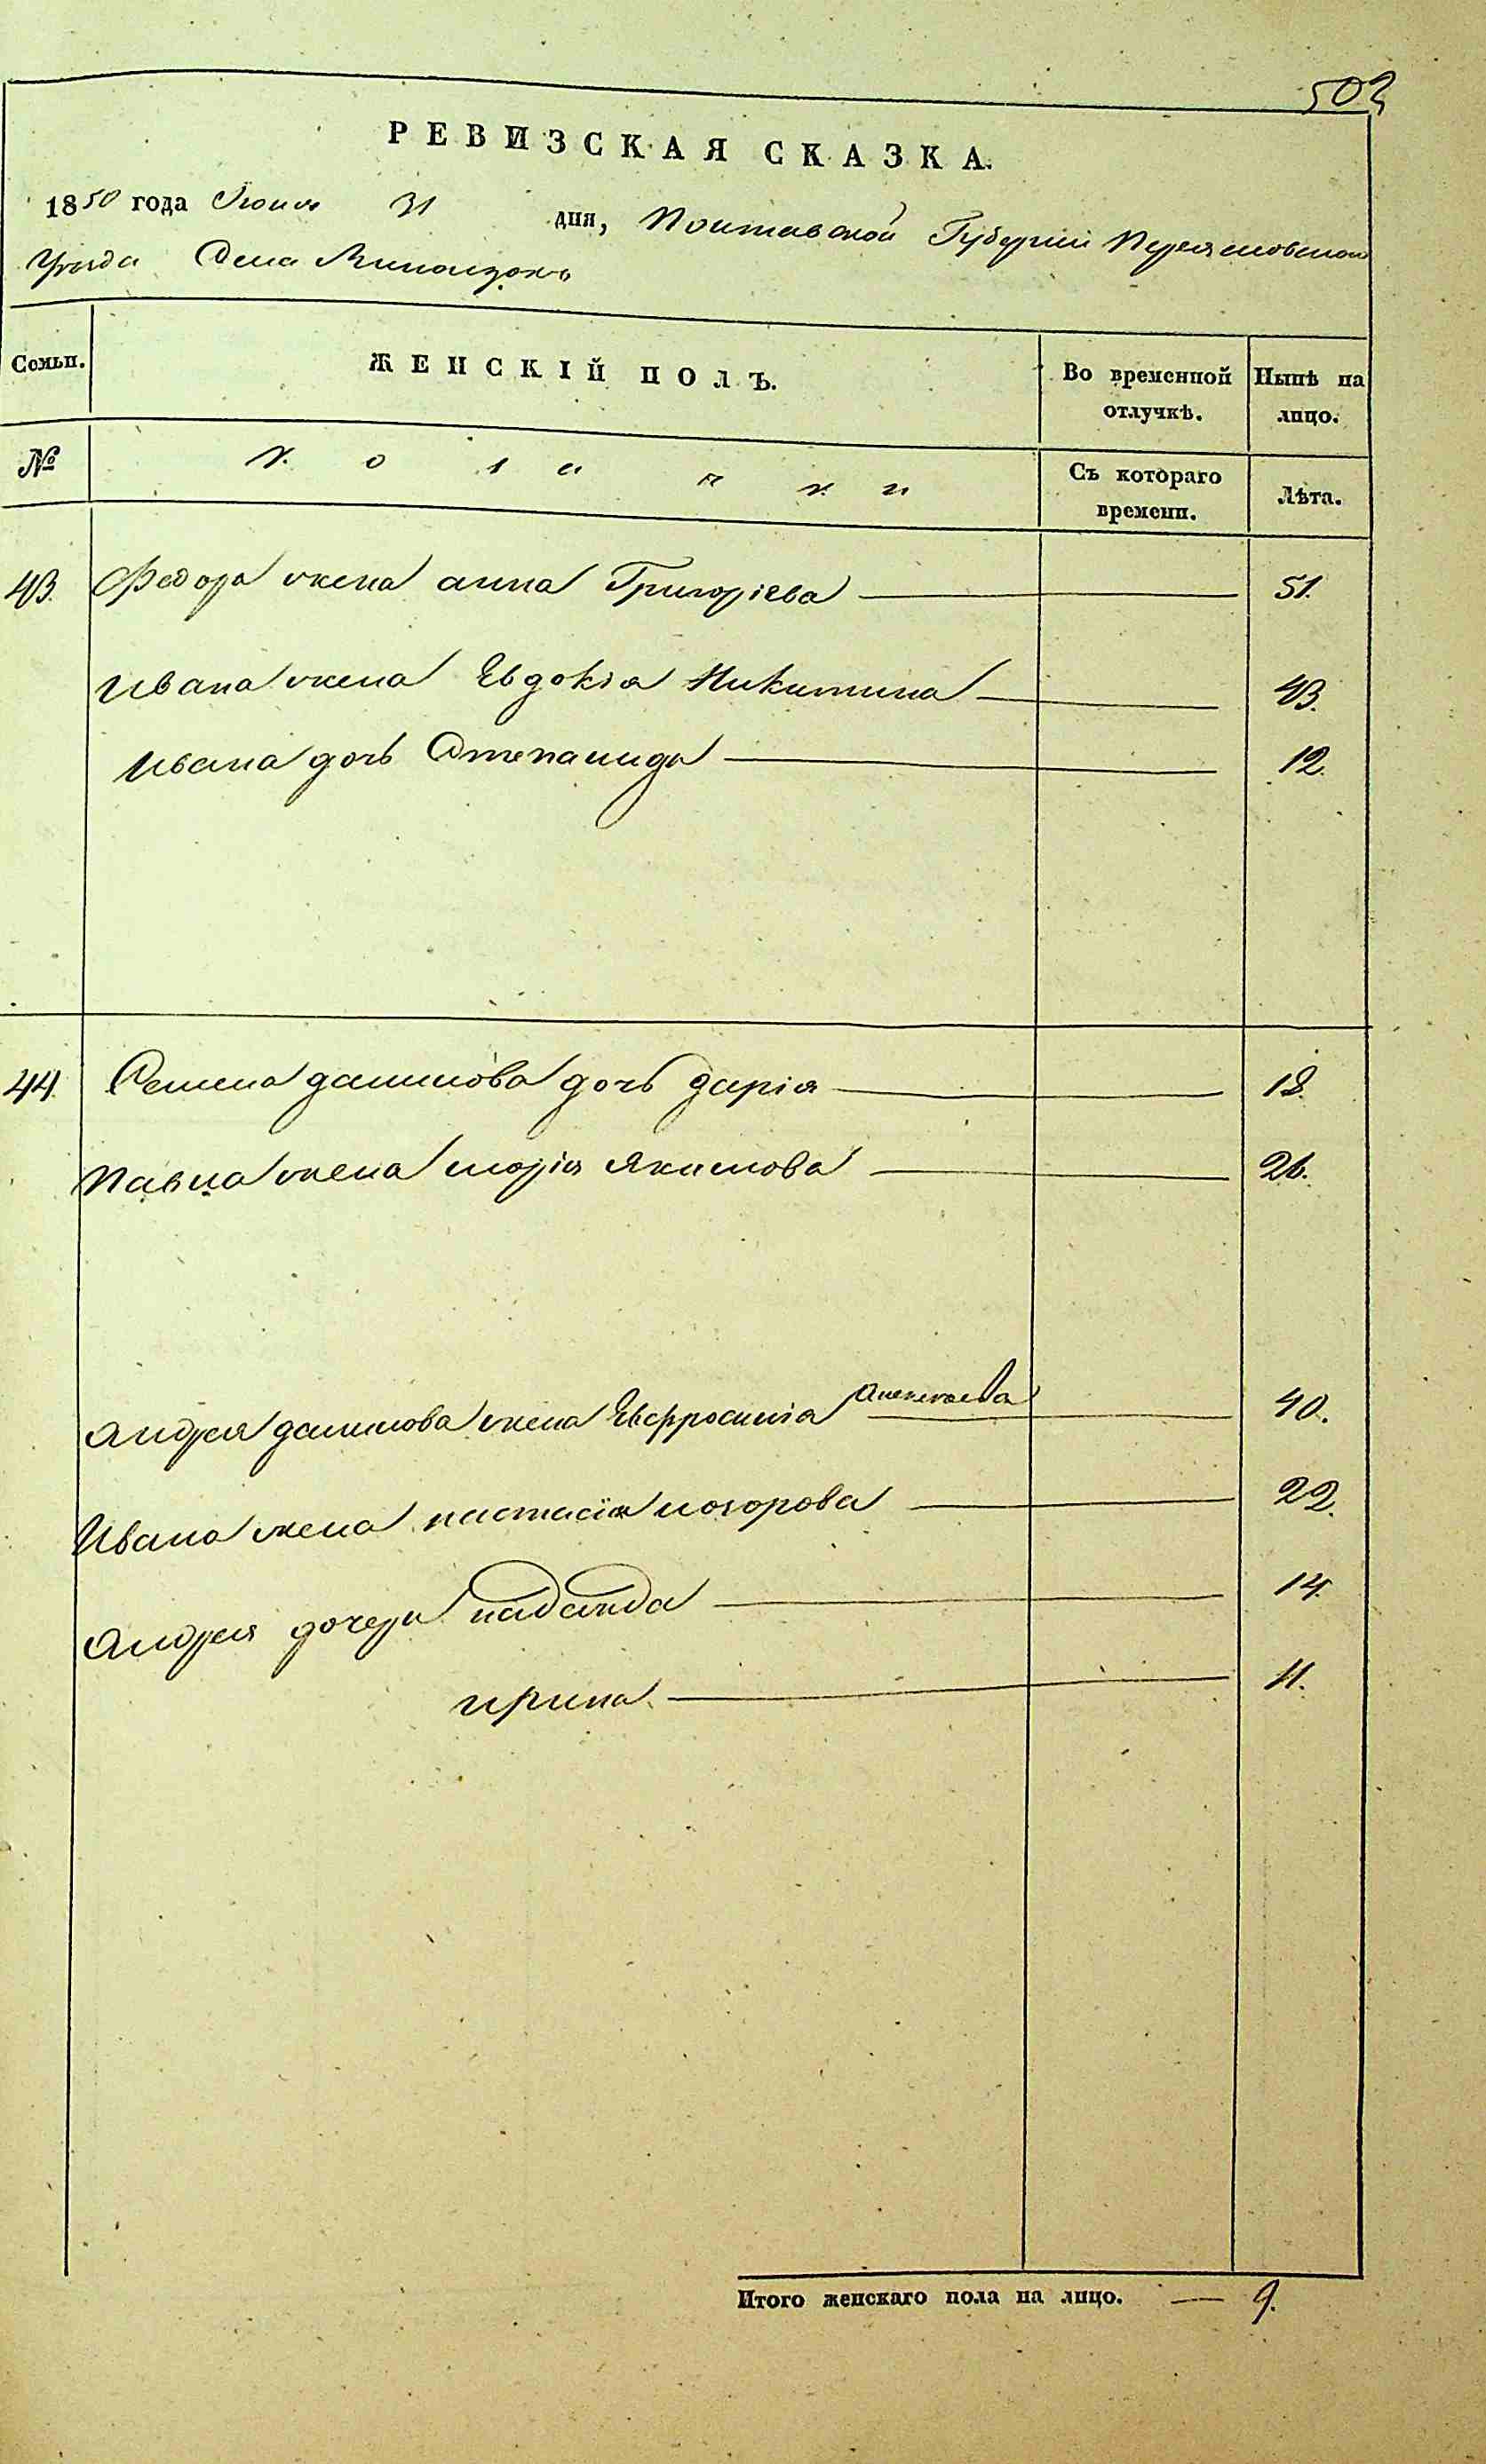 503
РЕВИЗСКАЯ СКАЗКА.
1850 года Июля 31 дня, Полтавской Губерніи Переясловскаго
Уезда Села
Семьи. ЖЕНСКІЙ ПОЛЪ. Во временной отлучкѣ. Нынѣ на лицо.
№ Козачки Съ котораго времени. Лѣта.
43. Федора жена анна Григоріева 51.
Ивана жена Евдокія Никитина 43.
Ивана дочь Степанида 12.
44. Семена данилова дочь дарія 18.
Павла жена марія Якимова 26.
Андрея данилова жена Евфросинія Алексѣева 40.
Ивана жена настасія 22.
Андрея дочери 14.
ирина 11.
Итого женскаго пола на лицо. — 9.